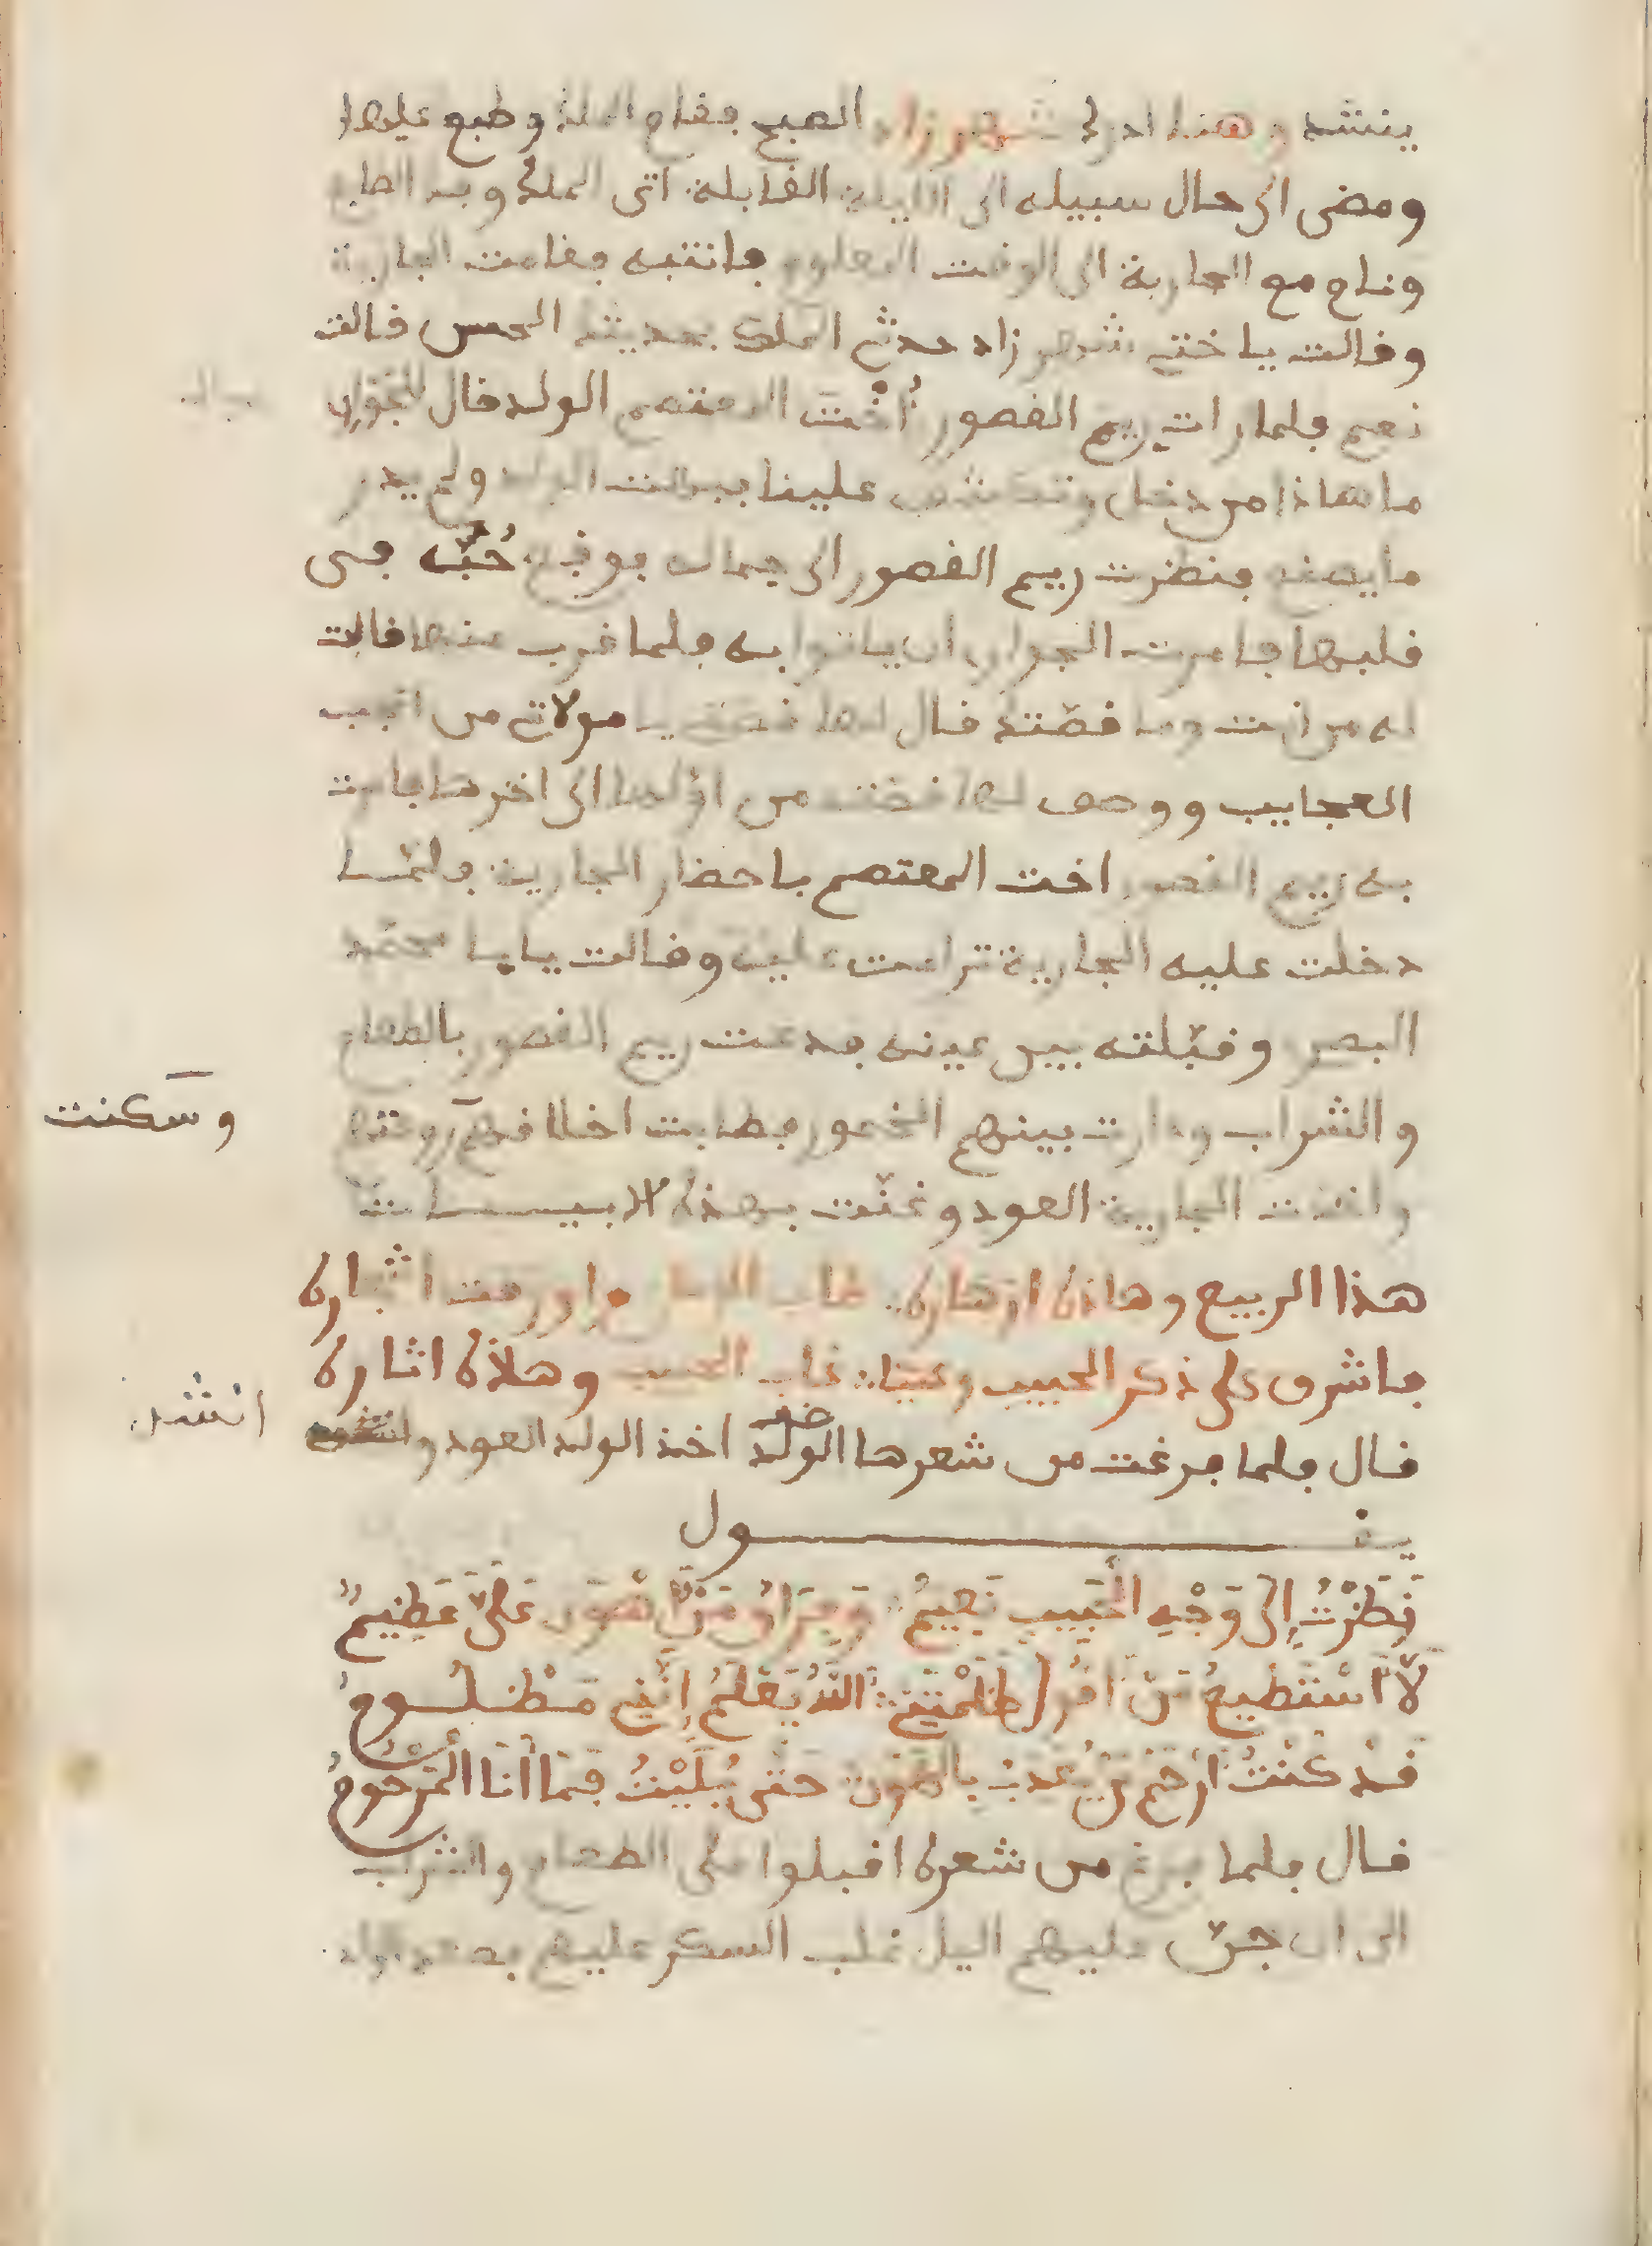 ينشد وهنا ادرك شهرزاد الصبح فقام الملك وطبع عليها
ومضى الى حال سبيله الى الليلة القابلة اتى الملك وبد الطابع
ونام مع الجارية الى الوقت المعلوم فانتبه فقامت الجارية
وقالت يا ختي شهرزاد حدث الملك بحديثك الحسن قالت
نعم فلما رات ريم القصور أُخْت المعتصم الولد قال للجوار
ما هاذا من دخل علينا فبهت الولد ولم يدر
ما يصنع فنظرت ريم القصور الى جماله فوقع حُبّه في
قلبها فامرت الجوار ان ياتوا به فلما قرب منها قالت
له من انت وما قصّتك قال لها قصتي يا مولاتي من اعجب
العجايب ووصف لها قصته من اوّلها الى اخرها فامرت
به ريم القصور اخت المعتصم باحضار الجارية فلمّا
دخلت عليه الجارية ترامت عليه وقالت يابا محمّد
البصر وقبّلته بين عينه فدعت ريم القصور بالطعام
والشراب ودارت بينهم الخمور فطابت اخلاقهم
وسكنت
واخذت الجارية العود وغنّت بهذه الابيات
هذا الربيع وهاذه ازهاره طاب الزمان واورقت اشجاره
فاشرب على ذكر الحبيب وعينا غاب الحبيب وهاذه اثاره
قال فلما فرغت من شعرها الولد اخذ الولد العود و
انشد
يقول
نَظَرْتُ إِلَى وَجْهِ الْحَبِيبِ نَعِيمُ وَفِرَاقُ مَنْ أَهْوَى عَلَيَّ عَظِيمُ
لَا أَسْتَطِيعُ مَنْ أَقُولُ ظَلَمْتَنِي اللَّهُ يَعْلَمُ إِنَّنِي مَظْلُومُ
قَدْ كُنْتُ أَرْحَمُ مَنْ يُعَذَّبُ بِالْهَوَى حَتَّى بُلِيتُ فَمَا أَنَا الْمَرْحُومُ
قال فلما فرغ من شعره اقبلوا على الطعام والشراب
الى ان جنّ عليهم اليل غلب السكر عليهم